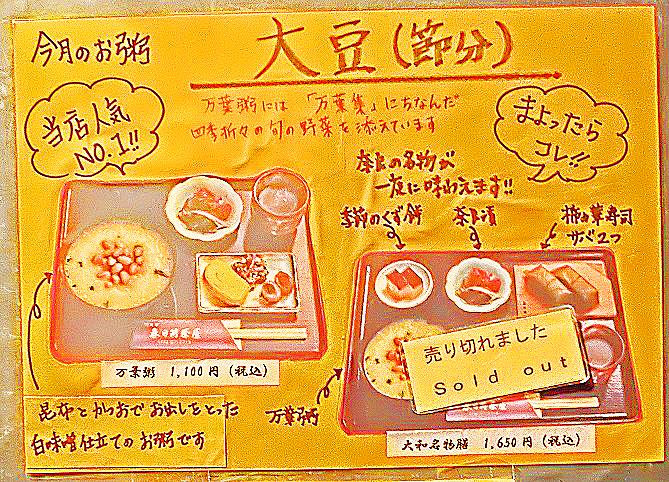 今月のお粥
大豆(節分)
万葉粥には「万葉集」にちなんだ
四季折々の旬の野菜を添えています
当店人気
NO.1!!
まよったら
コレ!!
奈良の名物が
一度に味わえます!!
季節のくず餅
奈良漬
柿の葉寿司
サバ2つ
春日荷茶屋
万葉粥 1,100円(税込)
売り切れました
Sold out
昆布とかつおでおだしをとった
白味噌仕立てのお粥です
万葉粥
大和名物膳 1,650円(税込)